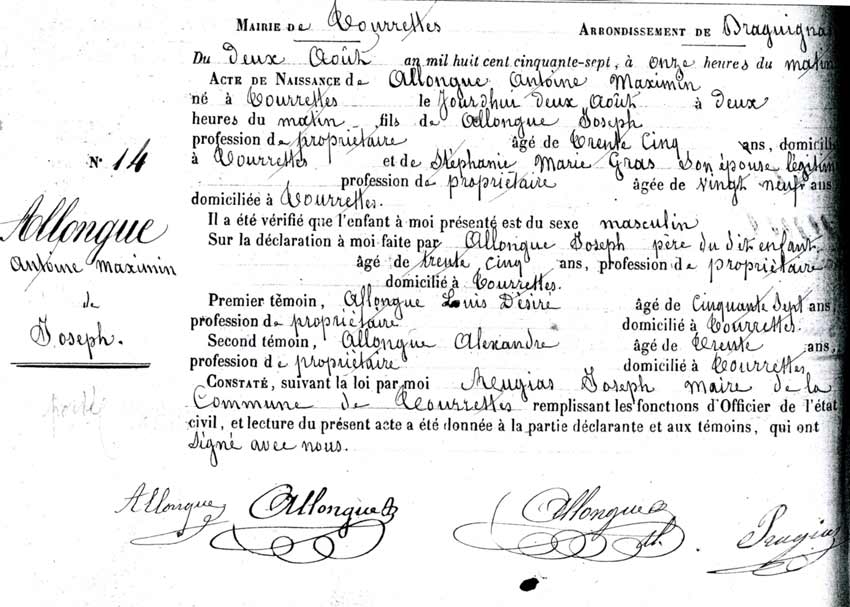 MAIRIE DE Tourrettes ARRONDISSEMENT DE Draguignan
Du deux Août an mil huit cent cinquante-sept, à onze heures du matin
ACTE DE NAISSANCE de Allongue Antoine Maximin
né à Tourrettes le Jourdhui deux Août à deux
heures du matin fils de Allongue Joseph
profession de propriétaire âgé de trente cinq ans, domicilié
à Tourrettes et de Stéphanie Marie Gras son épouse légitime
profession de propriétaire âgée de vingt neuf ans
domiciliée à Tourrettes.
Il a été vérifié que l'enfant à moi présenté est du sexe masculin
Sur la déclaration à moi faite par Allongue Joseph père du dit enfant
âgé de trente cinq ans, profession de propriétaire
domicilié à Tourrettes.
Premier témoin, Allongue Louis Désiré âgé de cinquante sept ans,
profession de propriétaire domicilié à Tourrettes.
Second témoin, Allongue Alexandre âgé de trente ans,
profession de propriétaire domicilié à Tourrettes
CONSTATÉ, suivant la loi par moi Joseph Maire de la
Commune de Tourrettes remplissant les fonctions d'Officier de l'état
civil, et lecture du présent acte a été donnée à la partie déclarante et aux témoins, qui ont
signé avec nous.
N° 14
Allongue
Antoine Maximin
de
Joseph.
porté
Allongue Allongue Allongue